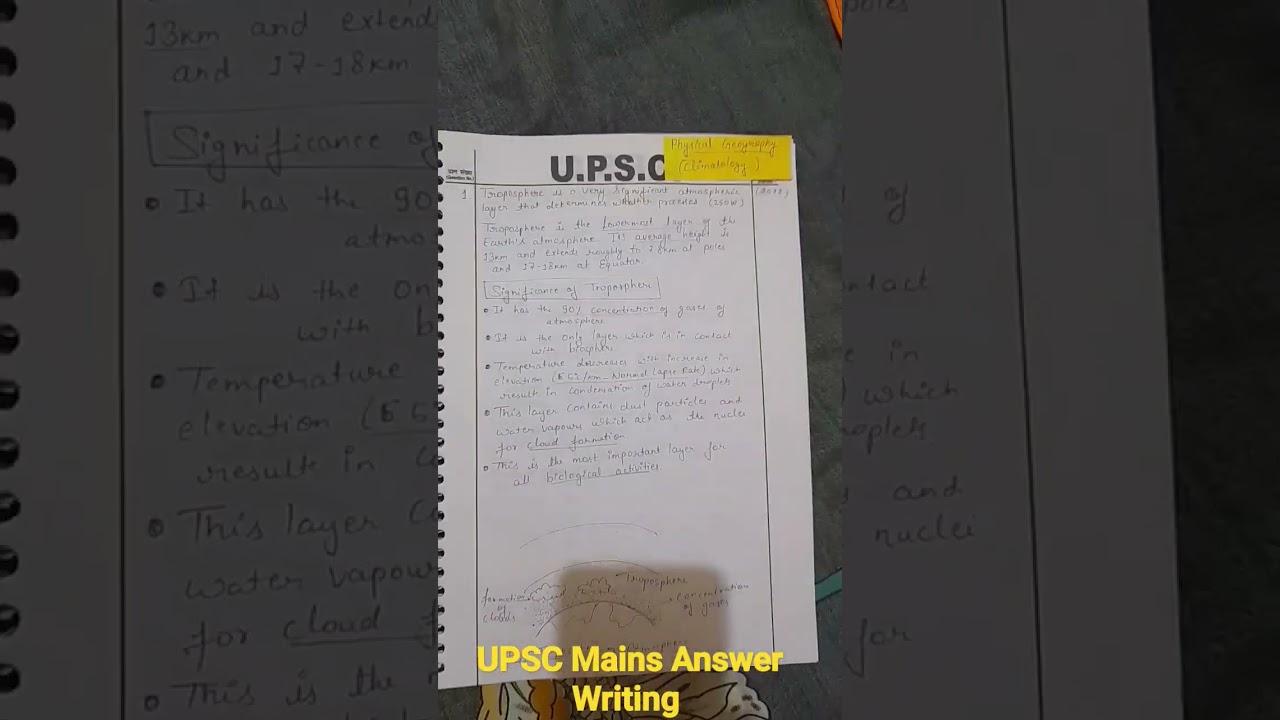 U.P.S.C
Physical Geography
(Climatology)
प्रश्न संख्या
(Question No.)
1. Troposphere is a very significant atmospheric
layer that determines whether processes (250W)
Troposphere is the lowermost layer of the
Earth's atmosphere. Its average height is
13km and extends roughly to 8km at poles
and 17-18km at Equator.
Significance of Troposphere
• It has the 90% concentration of gases of
atmosphere
• It is the only layer which is in contact
with biosphere
• Temperature decreases with increase in
elevation (6°C/km - Normal Lapse Rate) which
result in condensation of water droplets
• This layer contains dust particles and
water vapours which act as the nuclei
for cloud formation
• This is the most important layer for
all biological activities
Troposphere
formation
of
clouds
concentration
of gases
UPSC Mains Answer
Writing